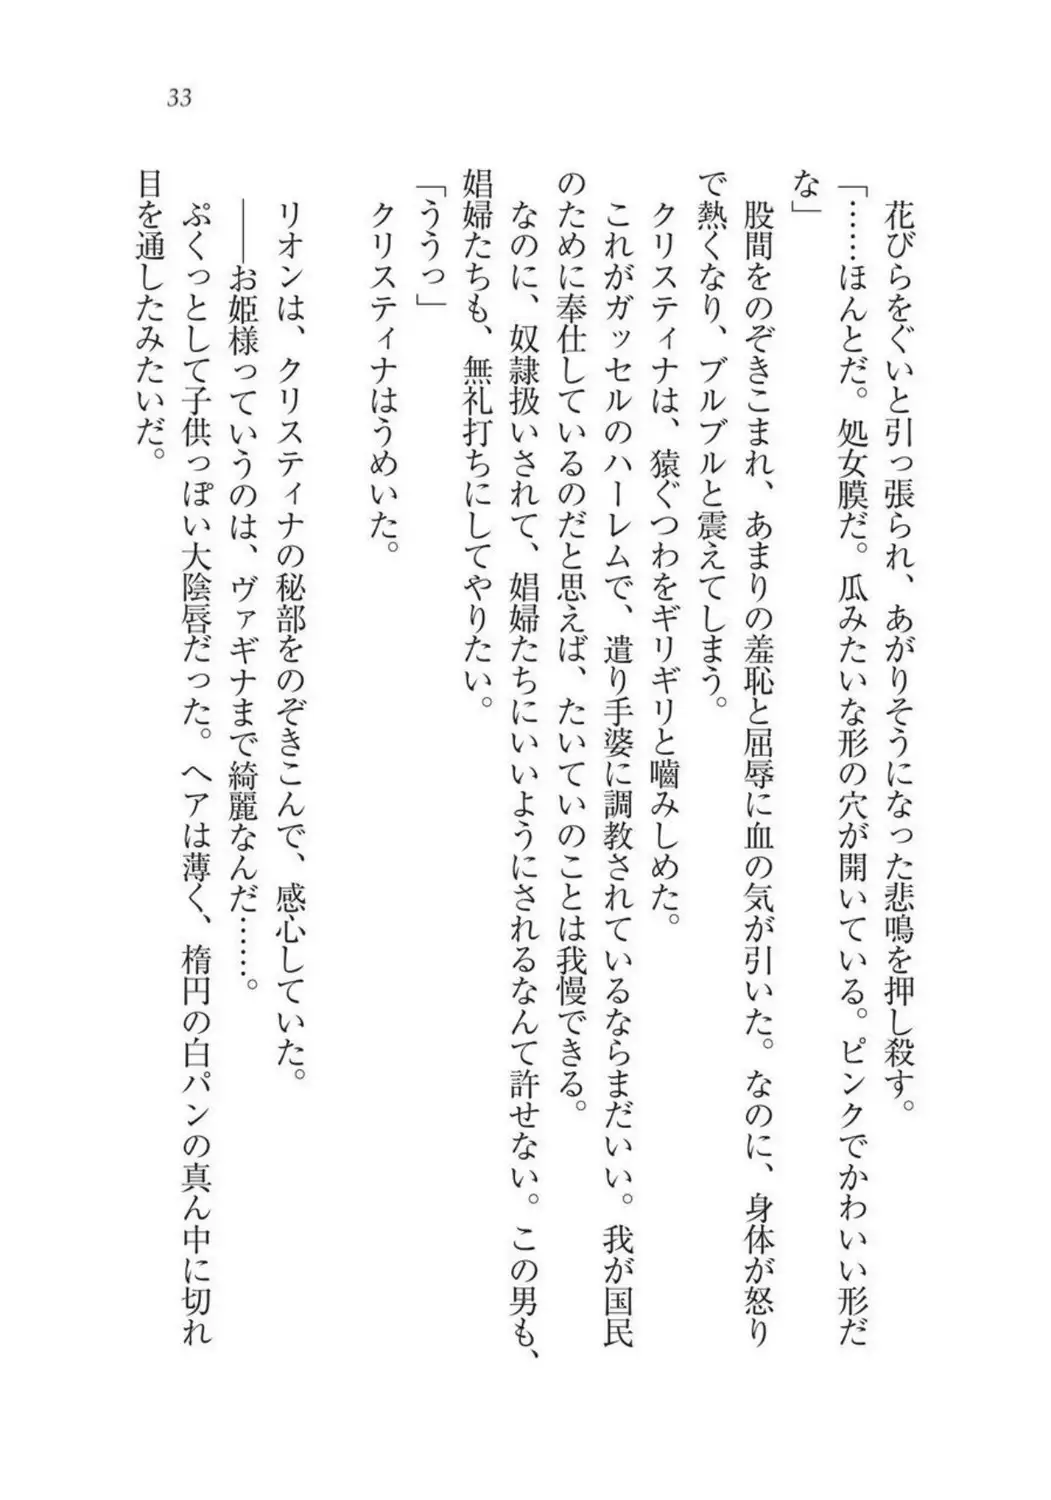 33
花びらをぐいと引っ張られ、あがりそうになった悲鳴を押し殺す。
「……ほんとだ。処女膜だ。瓜みたいな形の穴が開いている。ピンクでかわいい形だ
な」
股間をのぞきこまれ、あまりの羞恥と屈辱に血の気が引いた。なのに、身体が怒り
で熱くなり、ブルブルと震えてしまう。
クリスティナは、猿ぐつわをギリギリと嚙みしめた。
これがガッセルのハーレムで、遣り手婆に調教されているならまだいい。我が国民
のために奉仕しているのだと思えば、たいていのことは我慢できる。
なのに、奴隷扱いされて、娼婦たちにいいようにされるなんて許せない。この男も、
娼婦たちも、無礼打ちにしてやりたい。
「ううっ」
クリスティナはうめいた。
リオンは、クリスティナの秘部をのぞきこんで、感心していた。
――お姫様っていうのは、ヴァギナまで綺麗なんだ……。
ぷくっとして子供っぽい大陰唇だった。ヘアは薄く、楕円の白パンの真ん中に切れ
目を通したみたいだ。